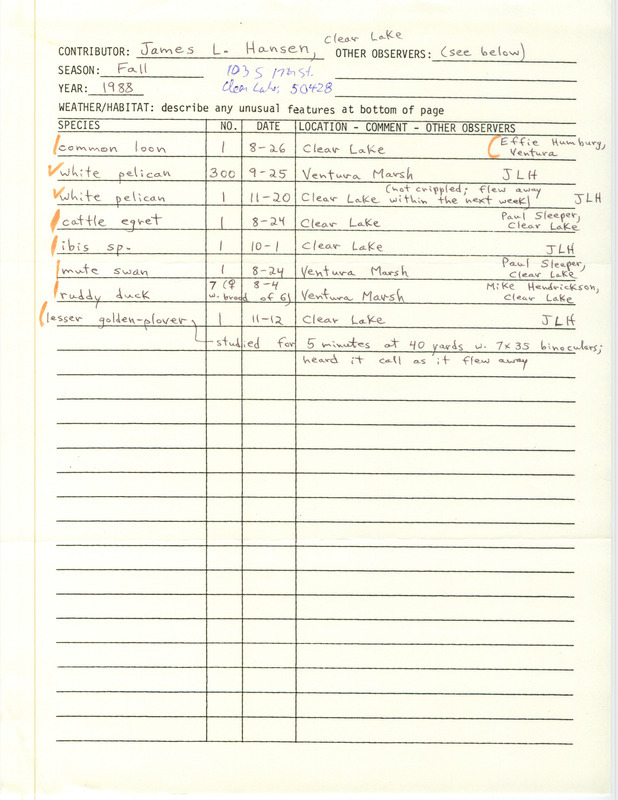 Clear Lake
CONTRIBUTOR: James L. Hansen, OTHER OBSERVERS: (see below)
SEASON: Fall 103 S 17th St.
YEAR: 1988 Clear Lake, 50428
WEATHER/HABITAT: describe any unusual features at bottom of page
SPECIES NO. DATE LOCATION - COMMENT - OTHER OBSERVERS
common loon 1 8-26 Clear Lake (Effie Humburg, Ventura
white pelican 300 9-25 Ventura Marsh JLH
white pelican 1 11-20 Clear Lake (not crippled; flew away within the next week) JLH
cattle egret 1 8-24 Clear Lake Paul Sleeper, Clear Lake
ibis sp. 1 10-1 Clear Lake JLH
mute swan 1 8-24 Ventura Marsh Paul Sleeper, Clear Lake
ruddy duck 7 (♀ w. brood of 6) 8-4 Ventura Marsh Mike Hendrickson, Clear Lake
lesser golden-plover 1 11-12 Clear Lake JLH
studied for 5 minutes at 40 yards w. 7x35 binoculars;
heard it call as it flew away